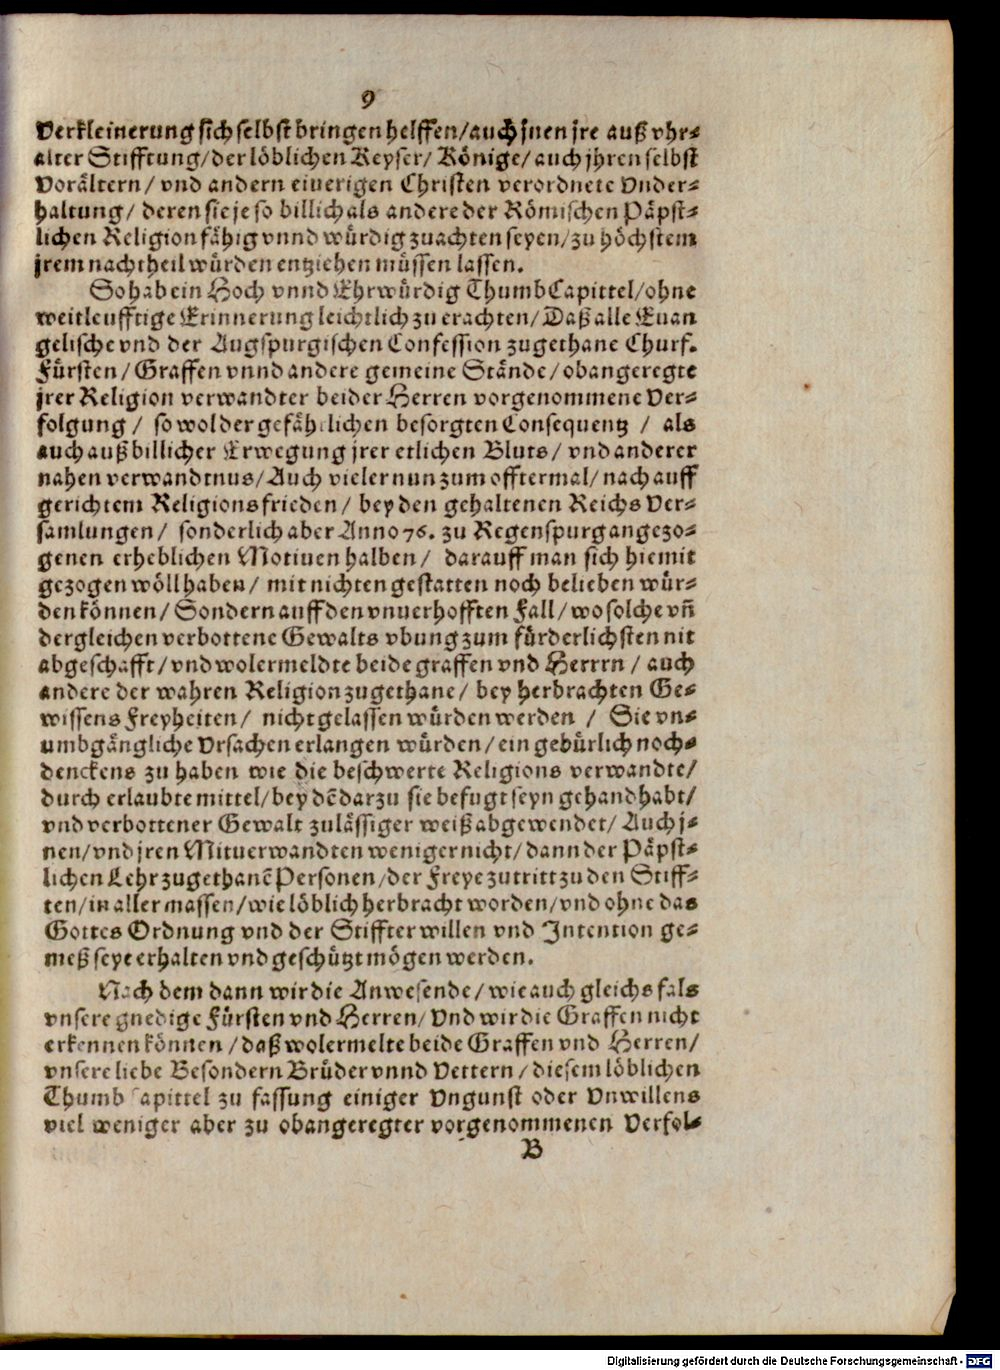 9
Verkleinerung sich selbst bringen helffen/auch jnen jre auß vhr-
alter Stifftung/der löblichen Keyser/ Könige/auch jhren selbst
Vorältern/ vnd andern eiuerigen Christen verordnete Vnder-
haltung/ deren sie je so billich als andere der Römischen Päpst-
lichen Religion fähig vnnd würdig zuachten seyen/zu höchstem
jrem nachtheil würden entziehen müssen lassen.
So hab ein Hoch vnnd Ehrwürdig Thumb Capittel/ohne
weitleufftige Erinnerung leichtlich zu erachten/Daß alle Euan
gelische vnd der Augspurgischen Confession zugethane Churf.
Fürsten/Graffen vnnd andere gemeine Stände/obangeregte
jrer Religion verwandter beider Herren vorgenommene Ver-
folgung/ so wol der gefährlichen besorgten Consequentz / als
auch auß billicher Erwegung jrer etlichen Bluts/ vnd anderer
nahen verwandtnus/Auch vieler nun zum offtermal/nach auff
gerichtem Religions frieden/ bey den gehaltenen Reichs Ver-
samlungen/ sonderlich aber Anno 76. zu Regenspurg angezo-
genen erheblichen Motiuen halben/ darauff man sich hiemit
gezogen wöll haben/ mit nichten gestatten noch belieben wür-
den können/Sondern auff den vnuerhofften Fall/wo solche vñ
dergleichen verbottene Gewalts vbung zum fürderlichsten nit
abgeschafft/vnd wolermeldte beide graffen vnd Herrrn/ auch
andere der wahren Religion zugethane/ bey herbrachten Ge-
wissens Freyheiten/ nicht gelassen würden werden / Sie vn-
umbgängliche Vrsachen erlangen würden/ein gebürlich noch-
denckens zu haben wie die beschwerte Religions verwandte/
durch erlaubte mittel/bey dē darzu sie befugt seyn gehandhabt/
vnd verbottener Gewalt zulässiger weiß abgewendet/Auch j-
nen/vnd jren Mituerwandten weniger nicht/dann der Päpst-
lichen Lehr zugethanē Personen/der Freye zutritt zu den Stiff-
ten/in aller massen/wie löblich herbracht worden/vnd ohne das
Gottes Ordnung vnd der Stiffter willen vnd Intention ge-
meß seye erhalten vnd geschützt mögen werden.
Nach dem dann wir die Anwesende/wie auch gleichs fals
vnsere gnedige Fürsten vnd Herren/Vnd wir die Graffen nicht
erkennen können/daß wolermelte beide Graffen vnd Herren/
vnsere liebe Besondern Brüder vnnd Vettern/diesem löblichen
Thumb Capittel zu fassung einiger Vngunst oder Vnwillens
viel weniger aber zu obangeregter vorgenommenen Verfol-
B
Digitalisierung gefördert durch die Deutsche Forschungsgemeinschaft - DFG